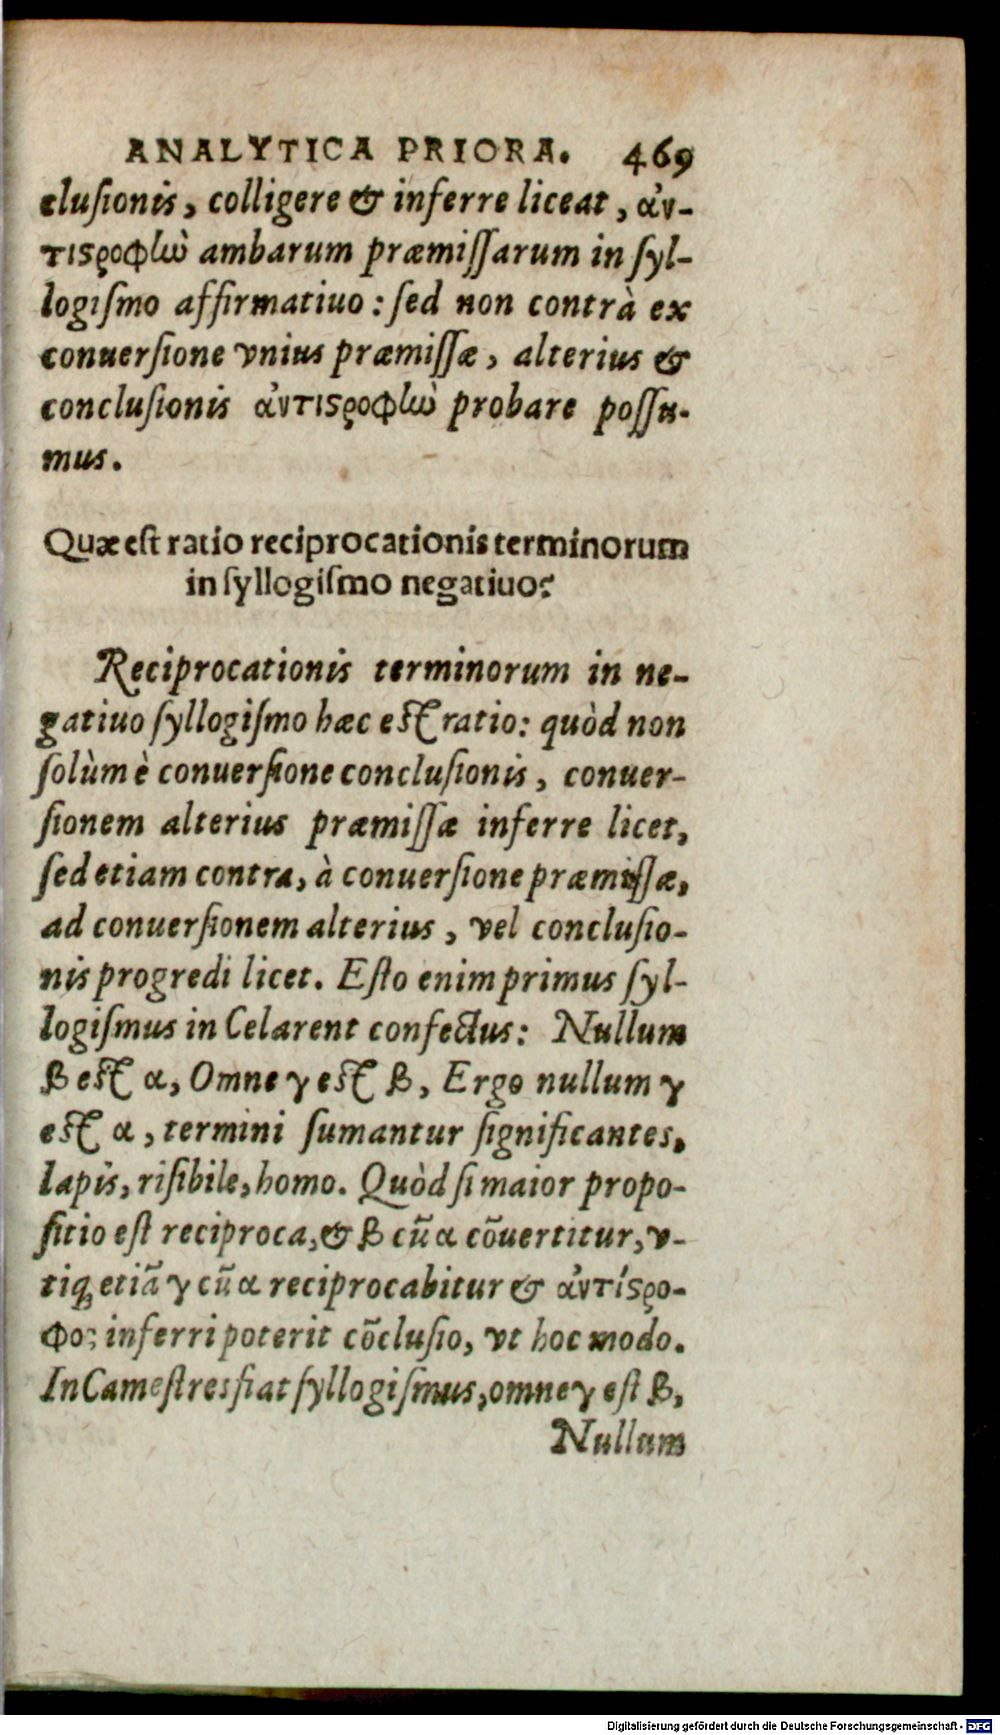 ANALYTICA PRIORA. 469
cluſionis, colligere & inferre liceat, ἀν-
τιϛροφὼ ambarum præmiſſarum in ſyl-
logiſmo affirmatiuo: ſed non contrà ex
conuerſione vnius præmiſſæ, alterius &
concluſionis ἀντιϛροφὼ probare poſſu-
mus.
Quæ eſt ratio reciprocationis terminorum
in ſyllogiſmo negatiuo?
Reciprocationis terminorum in ne-
gatiuo ſyllogiſmo hæc eſt ratio: quòd non
ſolùm è conuerſione concluſionis, conuer-
ſionem alterius præmiſſæ inferre licet,
ſed etiam contra, à conuerſione præmiſſæ,
ad conuerſionem alterius, vel concluſio-
nis progredi licet. Eſto enim primus ſyl-
logiſmus in Celarent confectus: Nullum
β eſt α, Omne γ eſt β, Ergo nullum γ
eſt α, termini ſumantur ſignificantes,
lapis, riſibile, homo. Quòd ſi maior propo-
ſitio eſt reciproca, & β cũ α cõuertitur, v-
tiq; etiã γ cũ α reciprocabitur & ἀντίϛρο-
φος inferri poterit cõcluſio, vt hoc modo.
In Cameſtres fiat ſyllogiſmus, omne γ eſt β,
Nullum
Digitalisierung gefördert durch die Deutsche Forschungsgemeinschaft - DFG